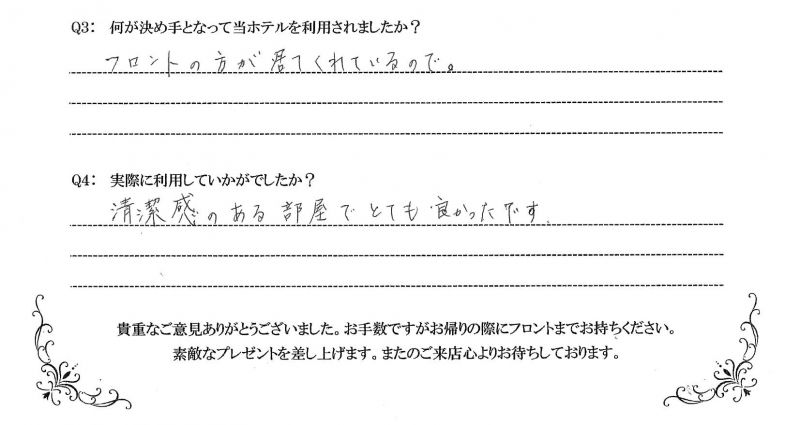 Q3： 何が決め手となって当ホテルを利用されましたか？
フロントの方が居てくれているので。
Q4： 実際に利用していかがでしたか？
清潔感のある部屋でとても良かったです
貴重なご意見ありがとうございました。お手数ですがお帰りの際にフロントまでお持ちください。
素敵なプレゼントを差し上げます。またのご来店心よりお待ちしております。